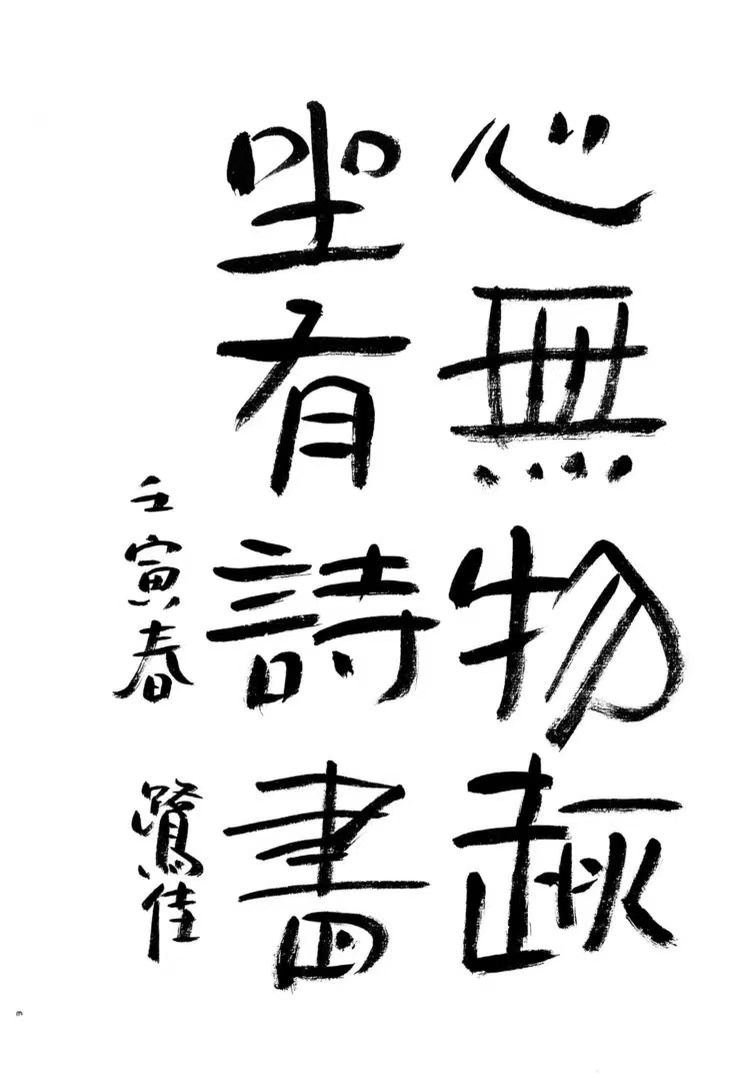 心無物趣
坐有詩書
壬寅春 鷺佳